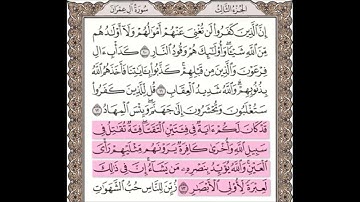 الجزء الثالث سورة آل عمران
إِنَّ الَّذِينَ كَفَرُوا لَن تُغْنِيَ عَنْهُمْ أَمْوَالُهُمْ وَلَا أَوْلَادُهُم
مِّنَ اللَّهِ شَيْئًا وَأُولَئِكَ هُمْ وَقُودُ النَّارِ ١٠ كَدَأْبِ ءَالِ
فِرْعَوْنَ وَالَّذِينَ مِن قَبْلِهِمْ كَذَّبُوا بِـَٔايَاتِنَا فَأَخَذَهُمُ اللَّهُ
بِذُنُوبِهِمْ وَاللَّهُ شَدِيدُ الْعِقَابِ ١١ قُل لِّلَّذِينَ كَفَرُوا
سَتُغْلَبُونَ وَتُحْشَرُونَ إِلَى جَهَنَّمَ وَبِئْسَ الْمِهَادُ ١٢
قَدْ كَانَ لَكُمْ ءَايَةٌ فِي فِئَتَيْنِ الْتَقَتَا فِئَةٌ تُقَاتِلُ فِي
سَبِيلِ اللَّهِ وَأُخْرَى كَافِرَةٌ يَرَوْنَهُم مِّثْلَيْهِمْ رَأْيَ
الْعَيْنِ وَاللَّهُ يُؤَيِّدُ بِنَصْرِهِ مَن يَشَاءُ إِنَّ فِي ذَلِكَ
لَعِبْرَةً لِّأُولِي الْأَبْصَارِ ١٣ زُيِّنَ لِلنَّاسِ حُبُّ الشَّهَوَاتِ